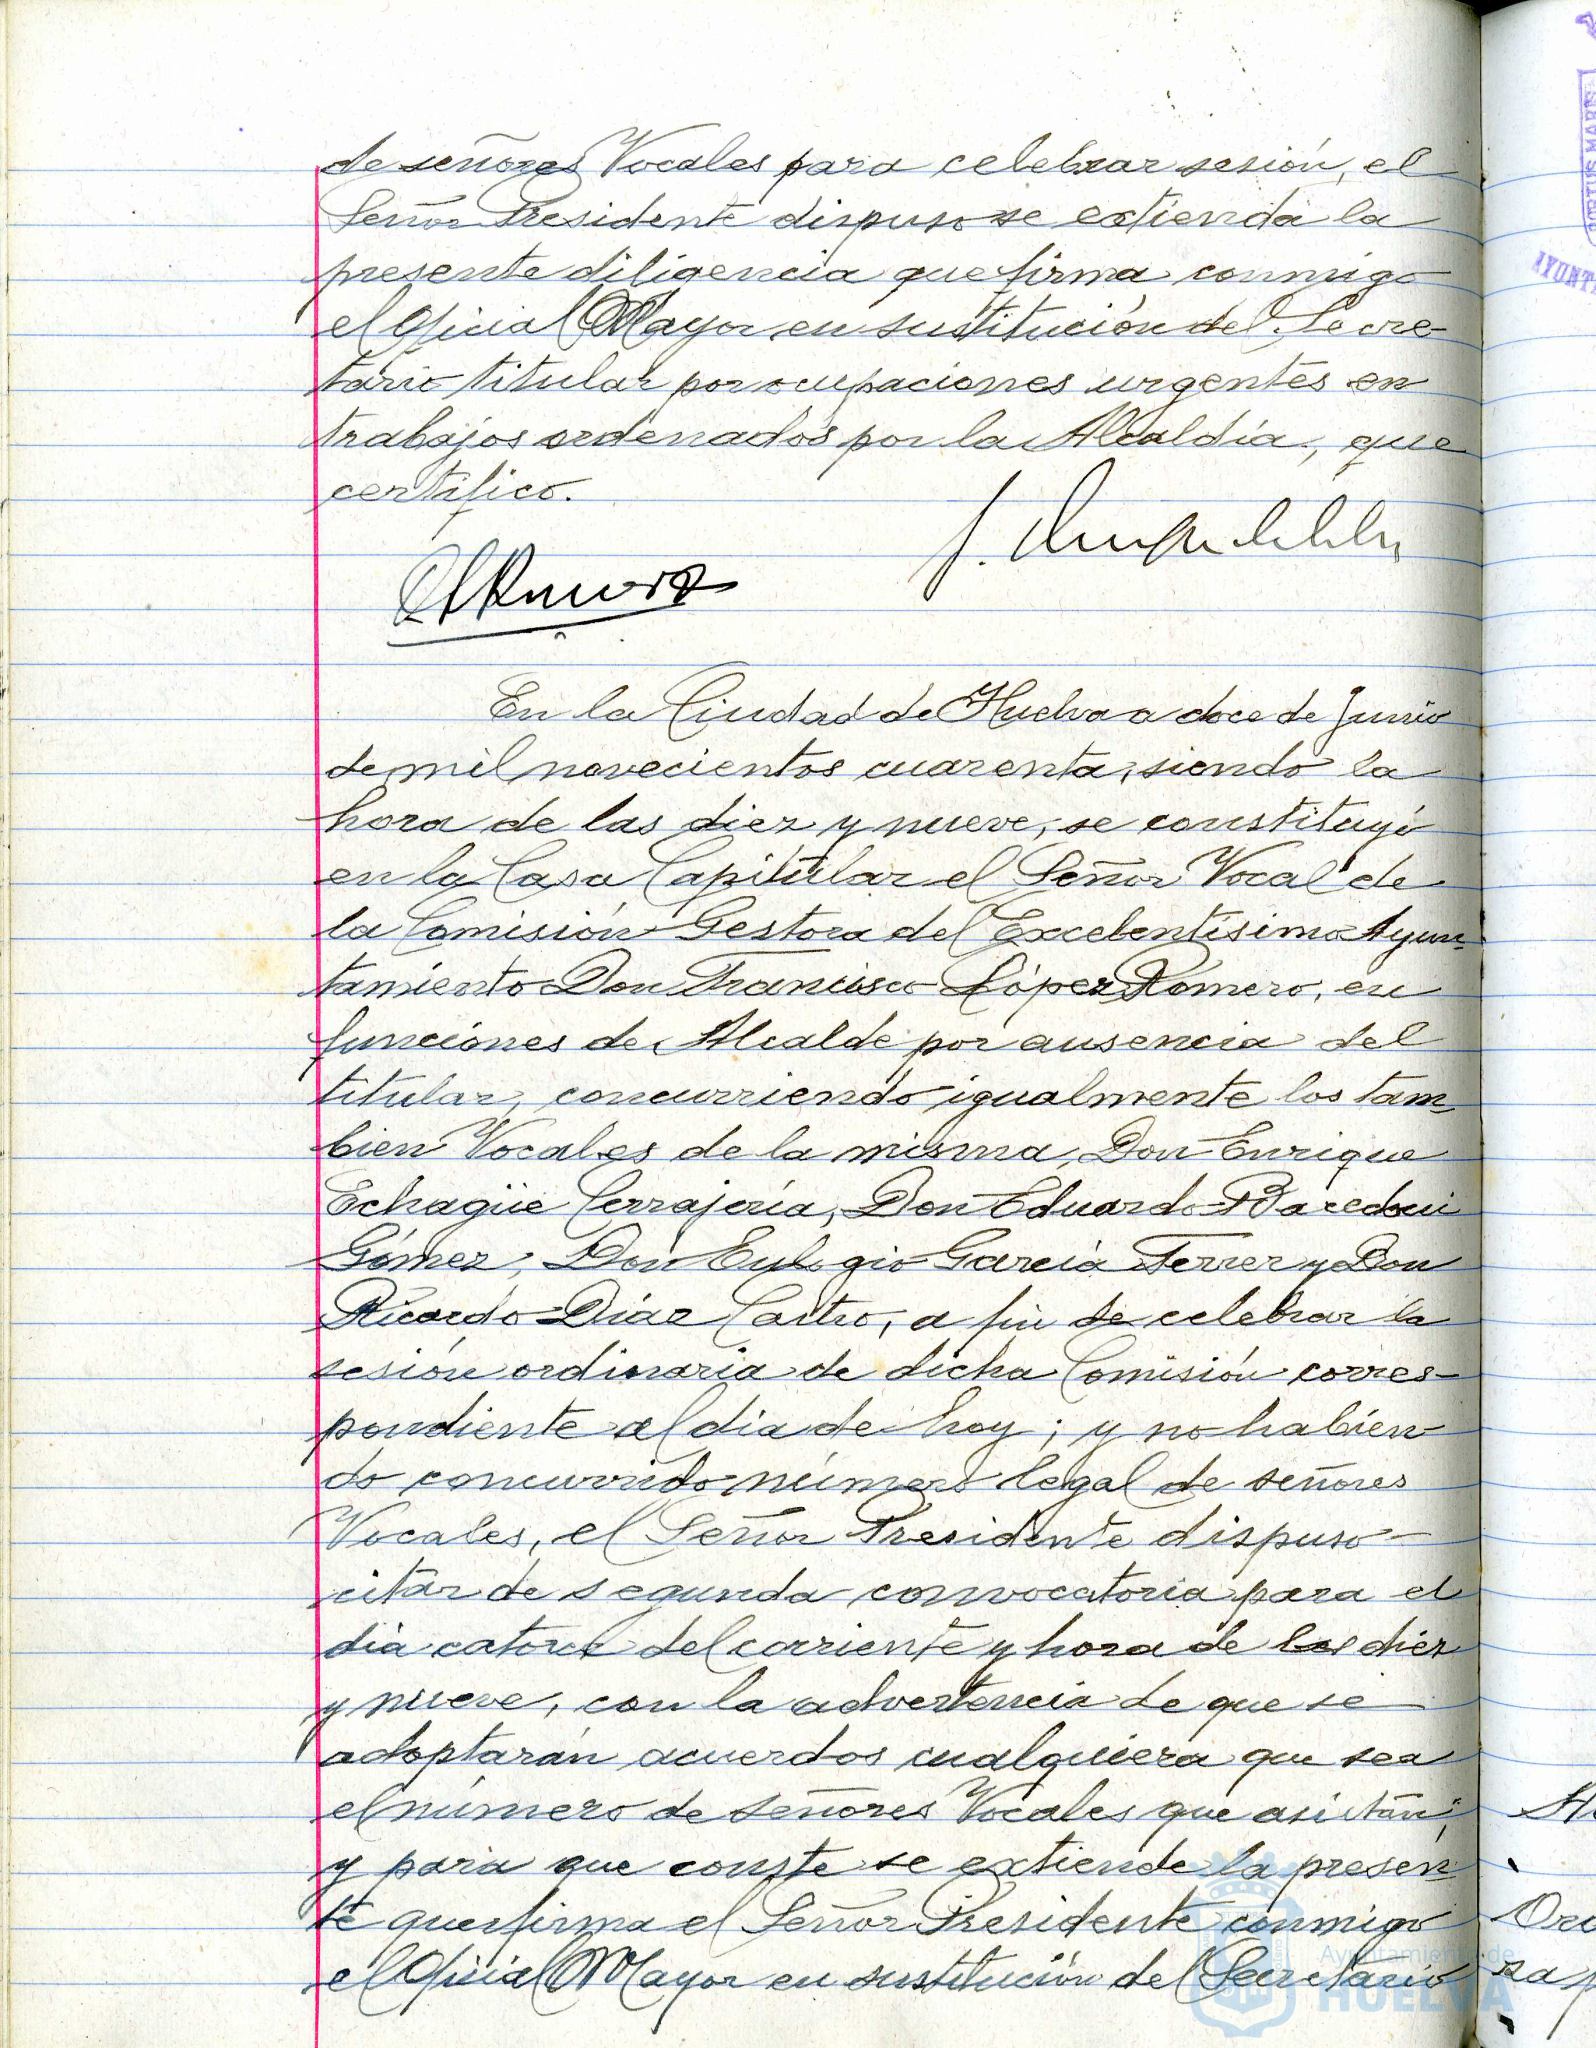 de señores Vocales para celebrar sesión, el
Señor Presidente dispuso se extienda la
presente diligencia que firma conmigo
el Oficial Mayor en sustitución del Secre-
tario titular por ocupaciones urgentes en
trabajos ordenados por la Alcaldía, que
certifico.
En la Ciudad de Huelva a doce de Junio
de mil novecientos cuarenta, siendo la
hora de las diez y nueve, se constituyó
en la Casa Capitular el Señor Vocal de
la Comisión Gestora del Excelentísimo Ayun-
tamiento Don Francisco López Romero, en
funciones de Alcalde por ausencia del
titular, concurriendo igualmente los tam-
bien Vocales de la misma, Don Enrique
Echagüe Cerrajería, Don Eduardo
Gómez, Don Eulogio García Ferrer y Don
Ricardo Díaz Castro, a fin de celebrar la
sesión ordinaria de dicha Comisión corres-
pondiente al dia de hoy; y no habien
do concurrido número legal de señores
Vocales, el Señor Presidente dispuso
citar de segunda convocatoria para el
dia catorce del corriente y hora de las diez
y nueve, con la advertencia de que se
adoptarán acuerdos cualquiera que sea
el número de señores Vocales que asistan;
y para que conste se extiende la presen-
te que firma el Señor Presidente conmigo
el Oficial Mayor en sustitución del Secretario
Ayuntamiento de
HUELVA